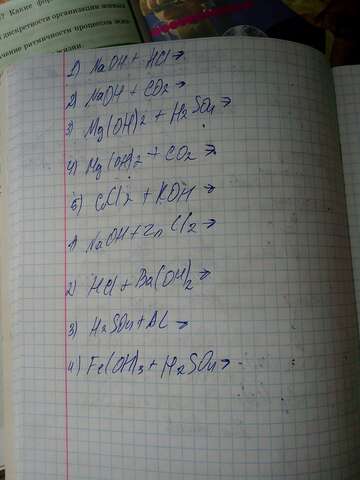 ? Какие фор
дискретности организации
ритмичности процессов
жизни.
1) NaOH + HCl →
2) NaOH + CO2 →
3) Mg(OH)2 + H2SO4 →
4) Mg(OH)2 + CO2 →
5) CuCl2 + KOH →
1) NaOH + ZnCl2 →
2) HCl + Ba(OH)2 →
3) H2SO4 + AL →
4) Fe(OH)3 + H2SO4 →